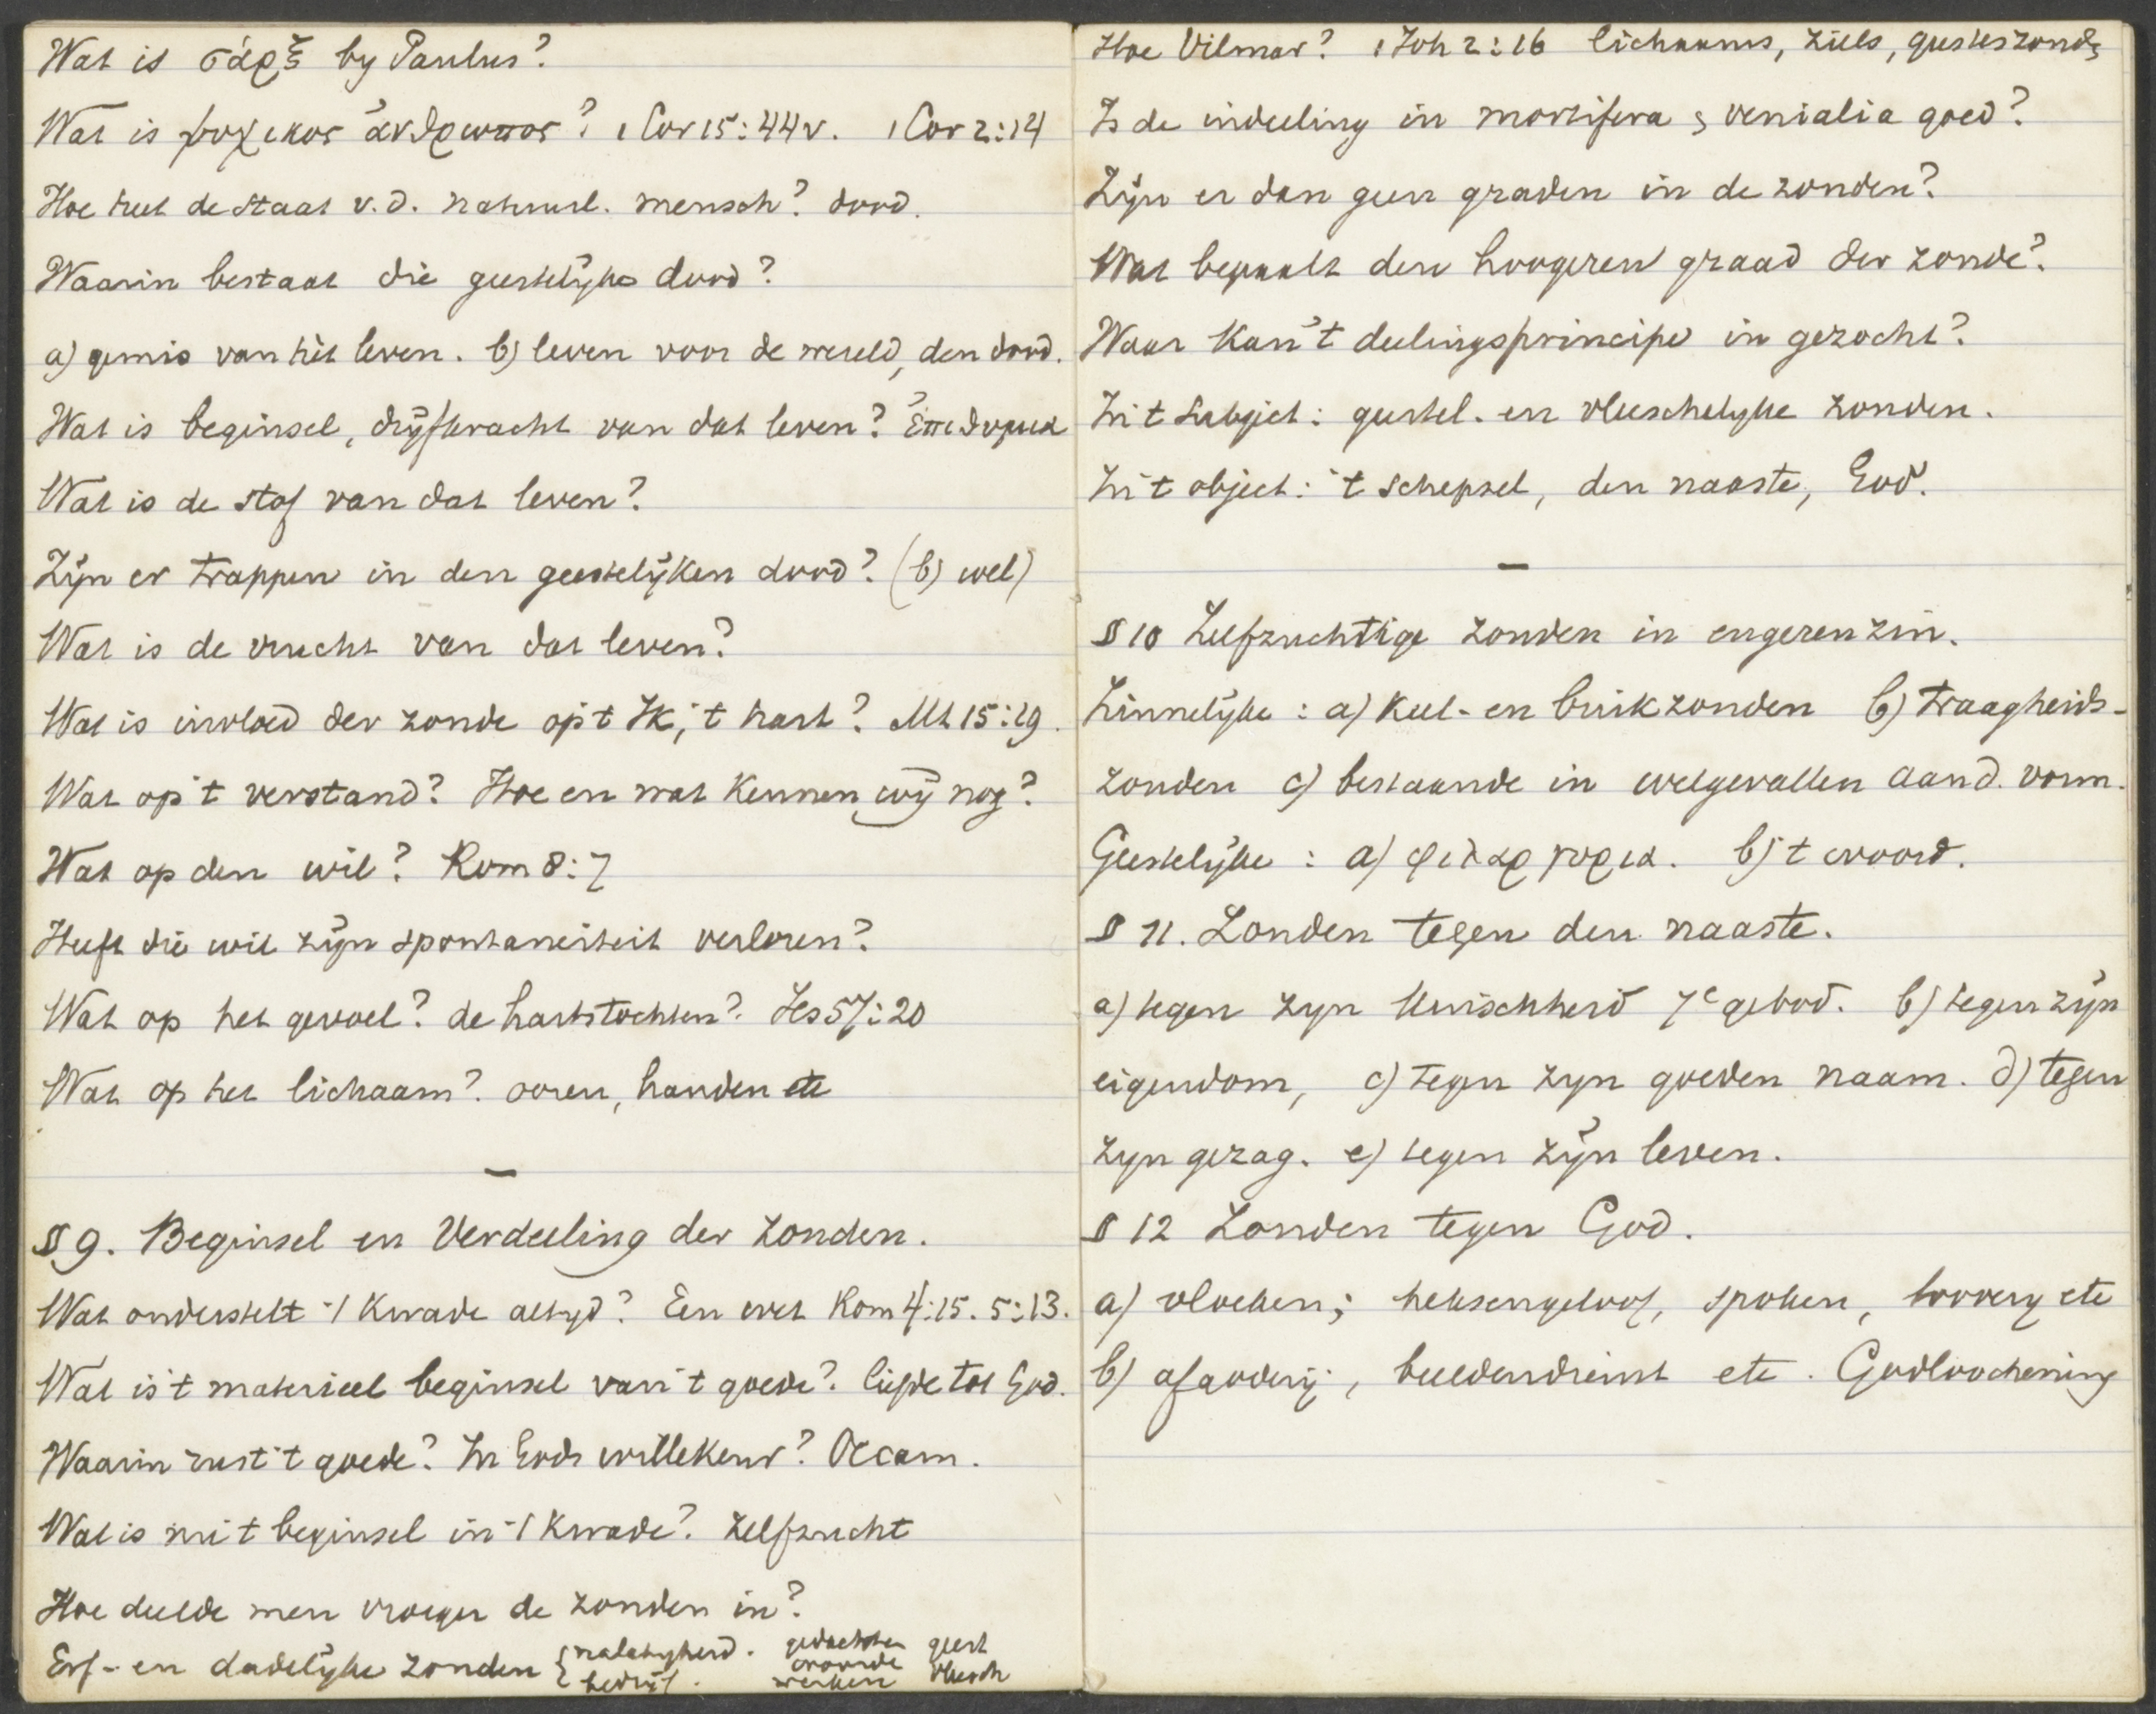 Wat is σάρξ by Paulus?
Wat is ψυχικος ἀνθρωπος? 1 Cor 15:44v. 1 Cor 2:14
Hoe heet de staat v.d. natuurl. mensch? dood.
Waarin bestaat die geestelijke dood?
a) gemis van hèt leven. b) leven voor de wereld, den dood.
Wat is beginsel, drijfkracht van dat leven? ἐπιθυμια
Wat is de stof van dat leven?
Zijn er trappen in den geestelijken dood? (b) wel)
Wat is de vrucht van dat leven?
Wat is invloed der zonde op 't Ik, 't hart? Mt 15:19.
Wat op 't verstand? Hoe en wat kennen wij nog?
Wat op den wil? Rom 8:7
Heeft die wil zijn spontaneiteit verloren?
Wat op het gevoel? de hartstochten? Jes 57:20
Wat op het lichaam? ooren, handen etc
—
§ 9. Beginsel en Verdeeling der Zonden.
Wat onderstelt 't Kwade altyd? Een wet Rom 4:15. 5:13.
Wat is 't materieel beginsel van 't goede? liefde tot God.
Waarin rust 't goede? In Gods willekeur? Occam.
Wat is nu 't beginsel in 't Kwade? Zelfzucht
Hoe deelde men vroeger de zonden in?
Erf- en dadelijke zonden { nalatigheid. bedrijf. gedachten woorden werken geest vleesch
Hoe Vilmar? 1 Joh 2:16 lichaams, ziels, geesteszonde
Is de indeeling in mortifera & venialia goed?
Zijn er dan geen graden in de zonden?
Wat bepaalt den hoogeren graad der zonde?
Waar kan 't deelingsprincipe in gezocht?
In 't subject: geestel. en vleeschelyke zonden.
In 't object: 't schepsel, den naaste, God.
—
§ 10 Zelfzuchtige zonden in engeren zin.
Zinnelijke: a) Keel- en buikzonden b) traagheids-
zonden c) bestaande in welgevallen aan d. vorm.
Geestelijke: a) φιλαργυρια. b) 't woord.
§ 11. Zonden tegen den naaste.
a) tegen zyn kuischheid 7e gebod. b) tegen zijn
eigendom, c) tegen zyn goeden naam. d) tegen
zyn gezag. e) tegen zijn leven.
§ 12 Zonden tegen God.
a) vloeken; heksengeloof, spoken, toovery etc
b) afgodery, beeldendienst etc. Godloochening